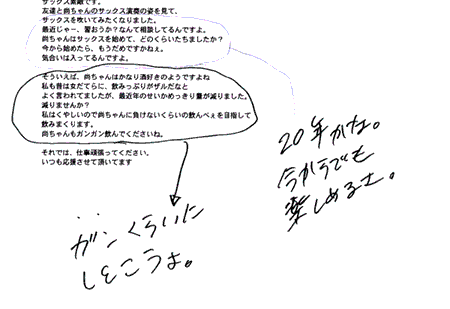 サックス素敵です。
友達と尚ちゃんのサックス演奏の姿を見て、
サックスを吹いてみたくなりました。
最近じゃー、習おうか？なんて相談してるんですよ。
尚ちゃんはサックスを始めて、どのくらいたちましたか？
今から始めたら、もうだめですかねぇ。
気合いは入ってるんですよ。
そういえば、尚ちゃんはかなり酒好きのようですよね
私も昔は女だてらに、飲みっぷりがザルだなと
よく言われてましたが、最近年のせいかめっきり量が減りました。
減りませんか？
私はくやしいので尚ちゃんに負けないくらいの飲んべぇを目指して
飲みまくります。
尚ちゃんもガンガン飲んでくださいね。
それでは、仕事頑張ってください。
いつも応援させて頂いてます
20年かな。
今からでも
楽しめるさ。
くらいに
しとこうよ。